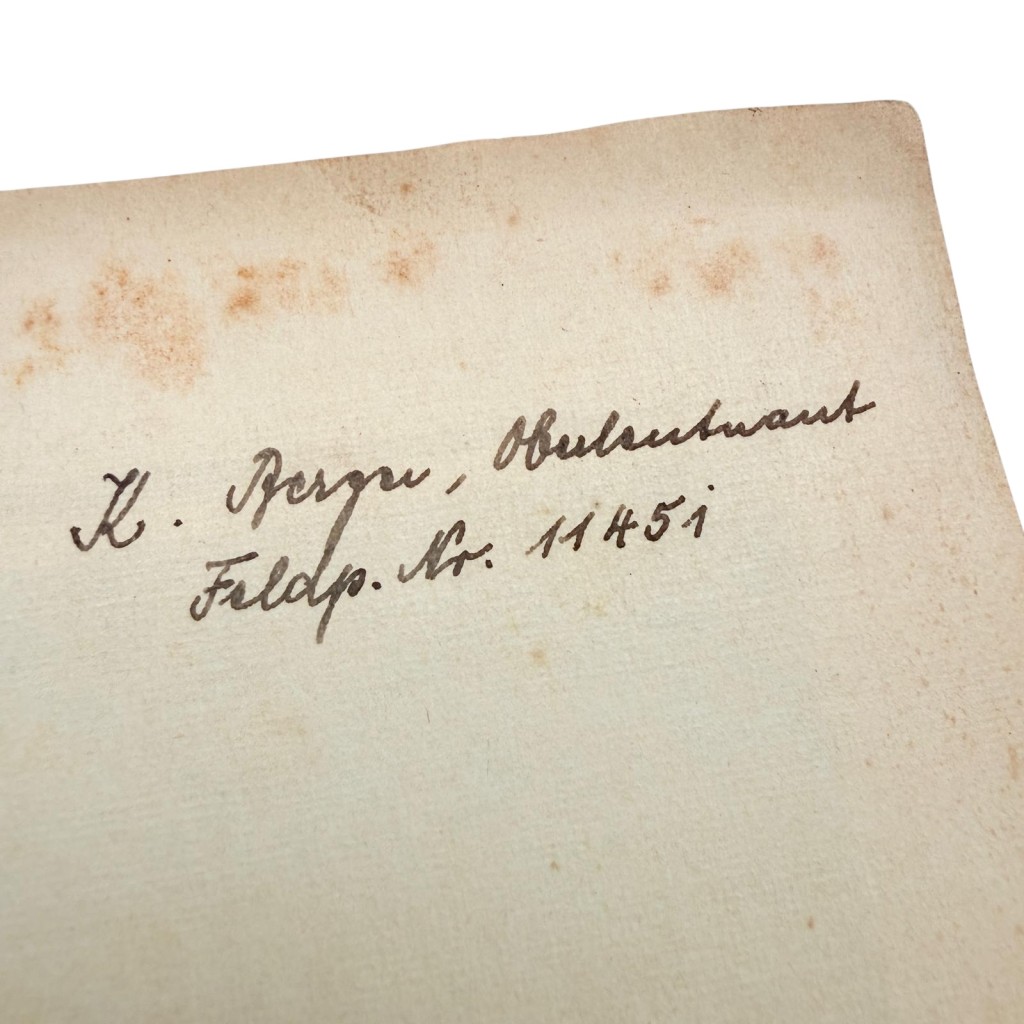 K. Berger, Oberleutnant
Feldp. Nr. 11451